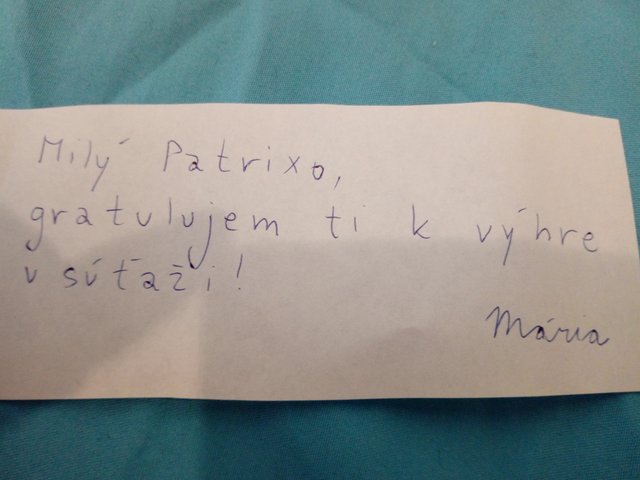 Milý Patrixo,
gratulujem ti k výhre
v súťaži!
Mária